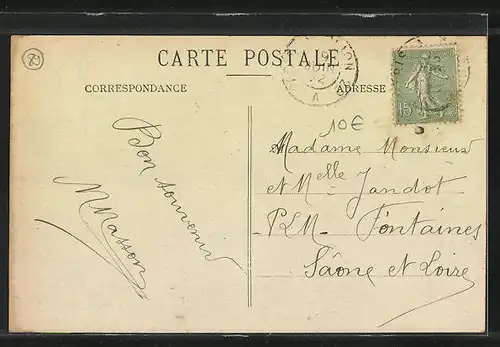 CARTE POSTALE
CORRESPONDANCE
ADRESSE
15c
10€
Bon souvenir
M Masson
Madame Monsieur
et Melle Jandot
P.L.M. Fontaines
Saône et Loire